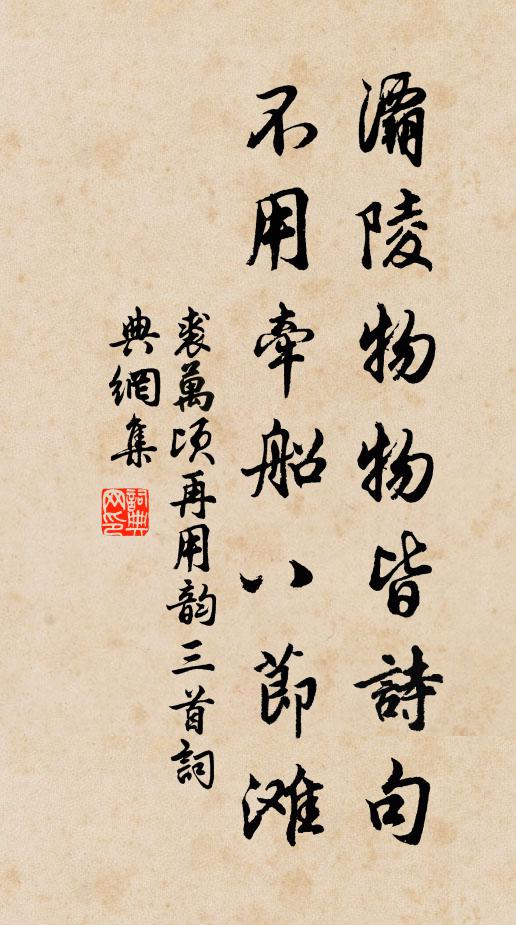 灞陵物物皆詩句
不用牽船八節滩
裘萬頃再用韵三首詞
典網集
詞典
网印